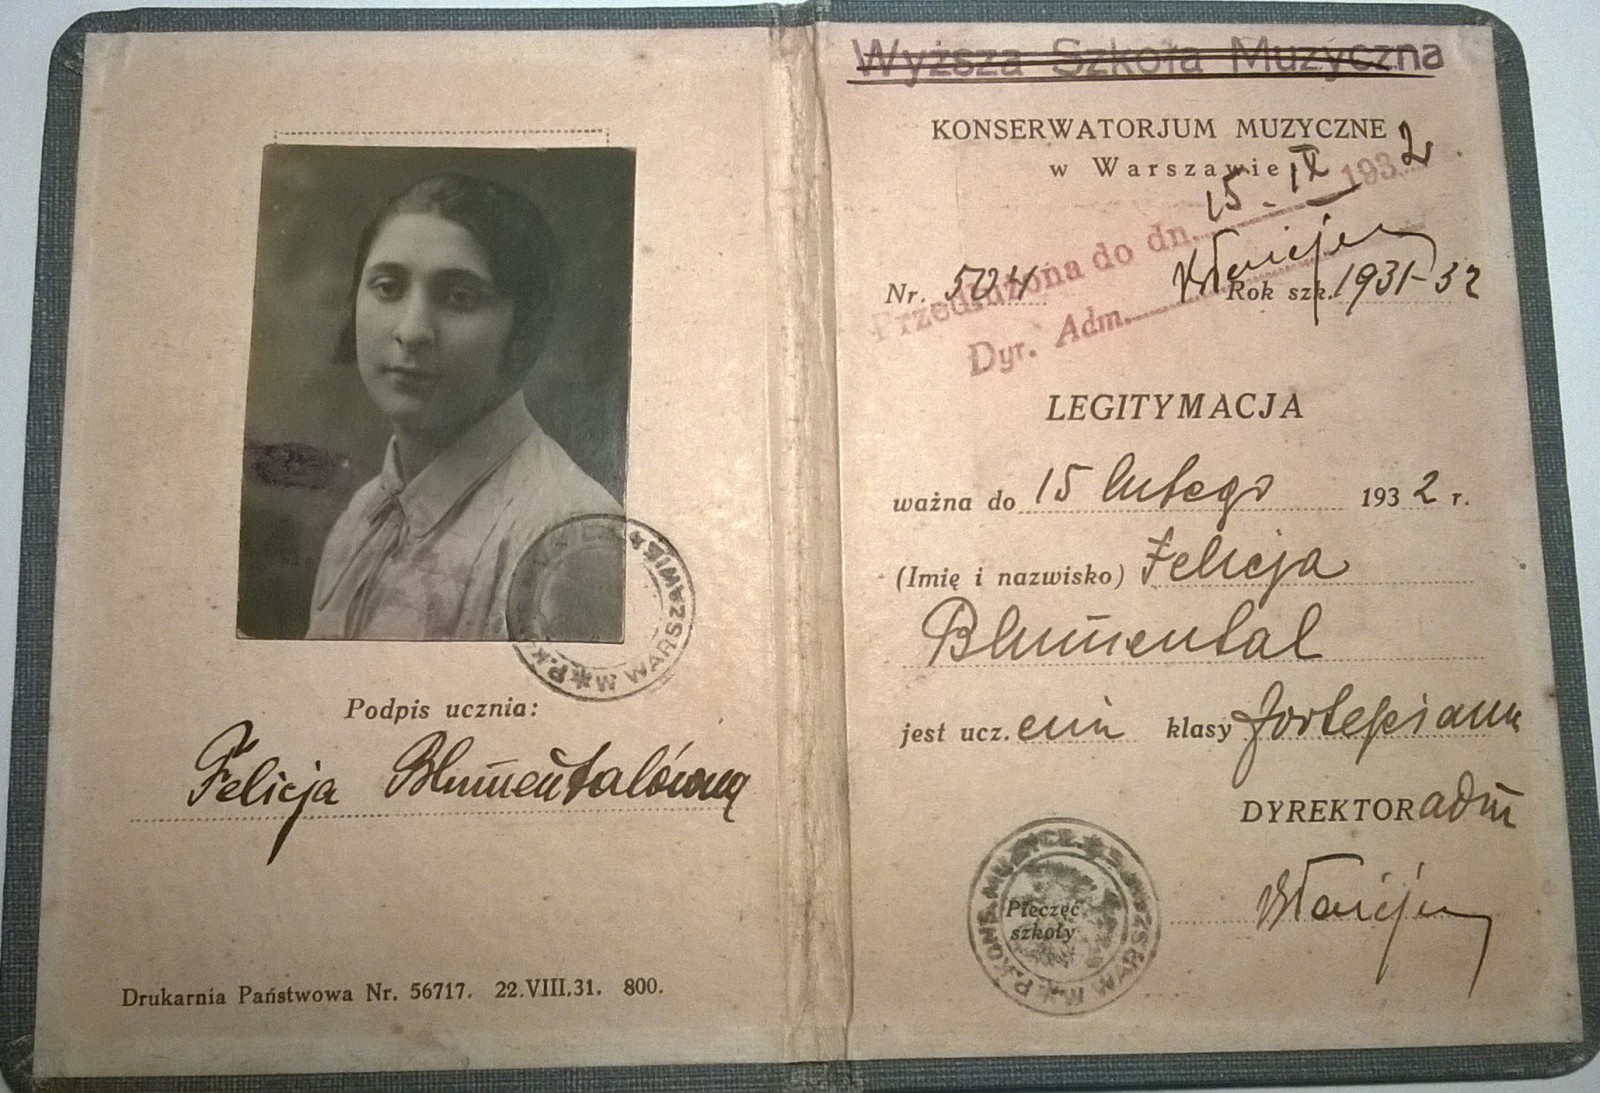 Podpis ucznia:
Felicja Blumentalówna
Drukarnia Państwowa Nr. 56717. 22.VIII.31. 800.
Wyższa Szkoła Muzyczna
KONSERWATORJUM MUZYCZNE
w Warszawie
Przedłużona do dn. 15. IX 1932
Dyr. Adm.
Nr. 504 Rok szk. 1931-32
LEGITYMACJA
ważna do 15 lutego 1932 r.
(Imię i nazwisko) Felicja
Blumental
jest ucz. enn klasy fortepianu
DYREKTOR adm
Pieczęć
szkoły
P. KONS. MUZYCZ. W WARSZAWIE